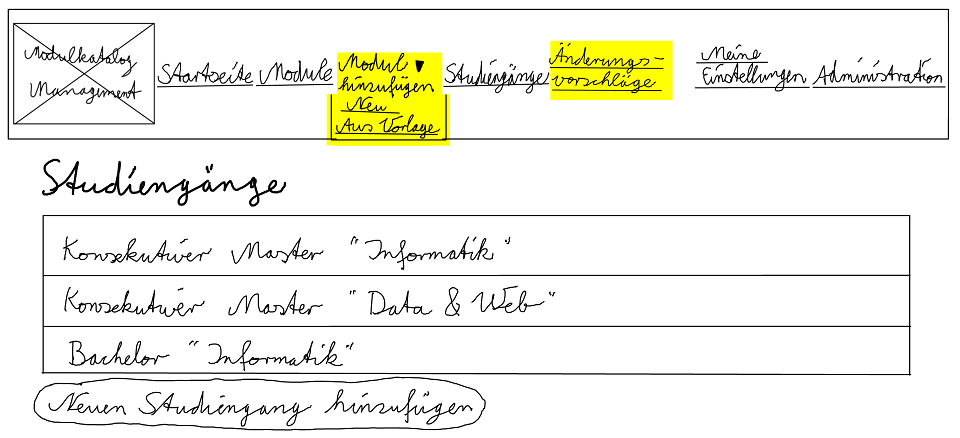 Modulkatalog
Management
Startseite
Module
Modul ▼
hinzufügen
Neu
Aus Vorlage
Studiengänge
Änderungs-
vorschläge
Meine
Einstellungen
Administration
Studiengänge
Konsekutiver Master "Informatik"
Konsekutiver Master "Data & Web"
Bachelor "Informatik"
Neuen Studiengang hinzufügen